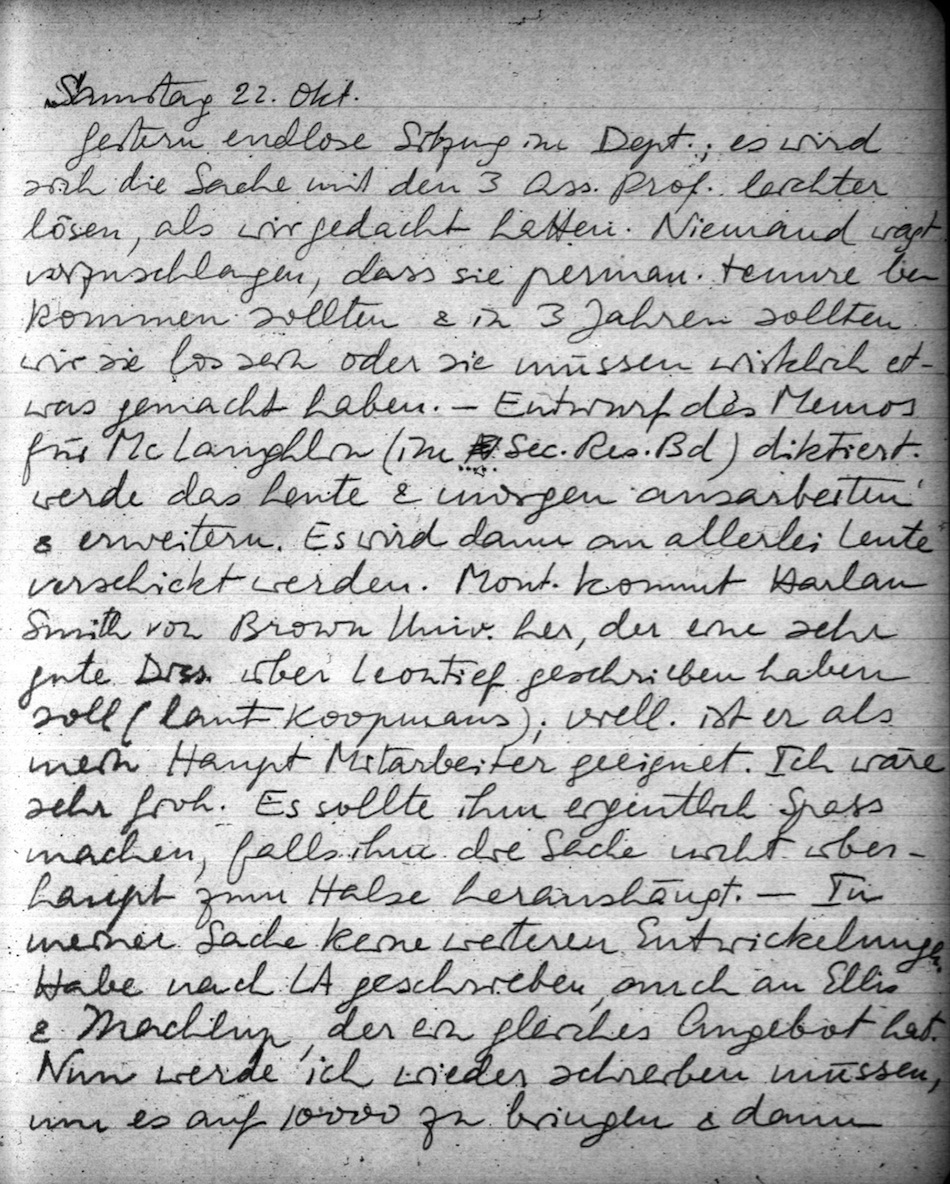 Samstag 22. Okt.
Gestern endlose Sitzung im Dept.; es wird
sich die Sache mit den 3 Ass. Prof. leichter
lösen, als wir gedacht hatten. Niemand wagt
vorzuschlagen, dass sie perman. tenure be
kommen sollten & in 3 Jahren sollten
wir sie los sein oder sie müssen wirklich et-
was gemacht haben. – Entwurf des Memos
für McLaughlin (im Sec. Res. Bd) diktiert.
werde das heute & morgen ausarbeiten
& erweitern. Es wird dann an allerlei Leute
verschickt werden. Mont. kommt Harlan
Smith von Brown Univ. her, der eine sehr
gute Diss. über Leontief geschrieben haben
soll (laut Koopmans); viell. ist er als
mein Haupt Mitarbeiter geeignet. Ich wäre
sehr froh. Es sollte ihm eigentlich Spass
machen, falls ihm die Sache nicht über-
haupt zum Halse heraushängt. – In
meiner Sache keine weiteren Entwickelungen
Habe nach LA geschrieben, auch an Ellis
& Machlup, der ein gleiches Angebot hat.
Nun werde ich wieder schreiben müssen,
um es auf 10000 zu bringen & dann